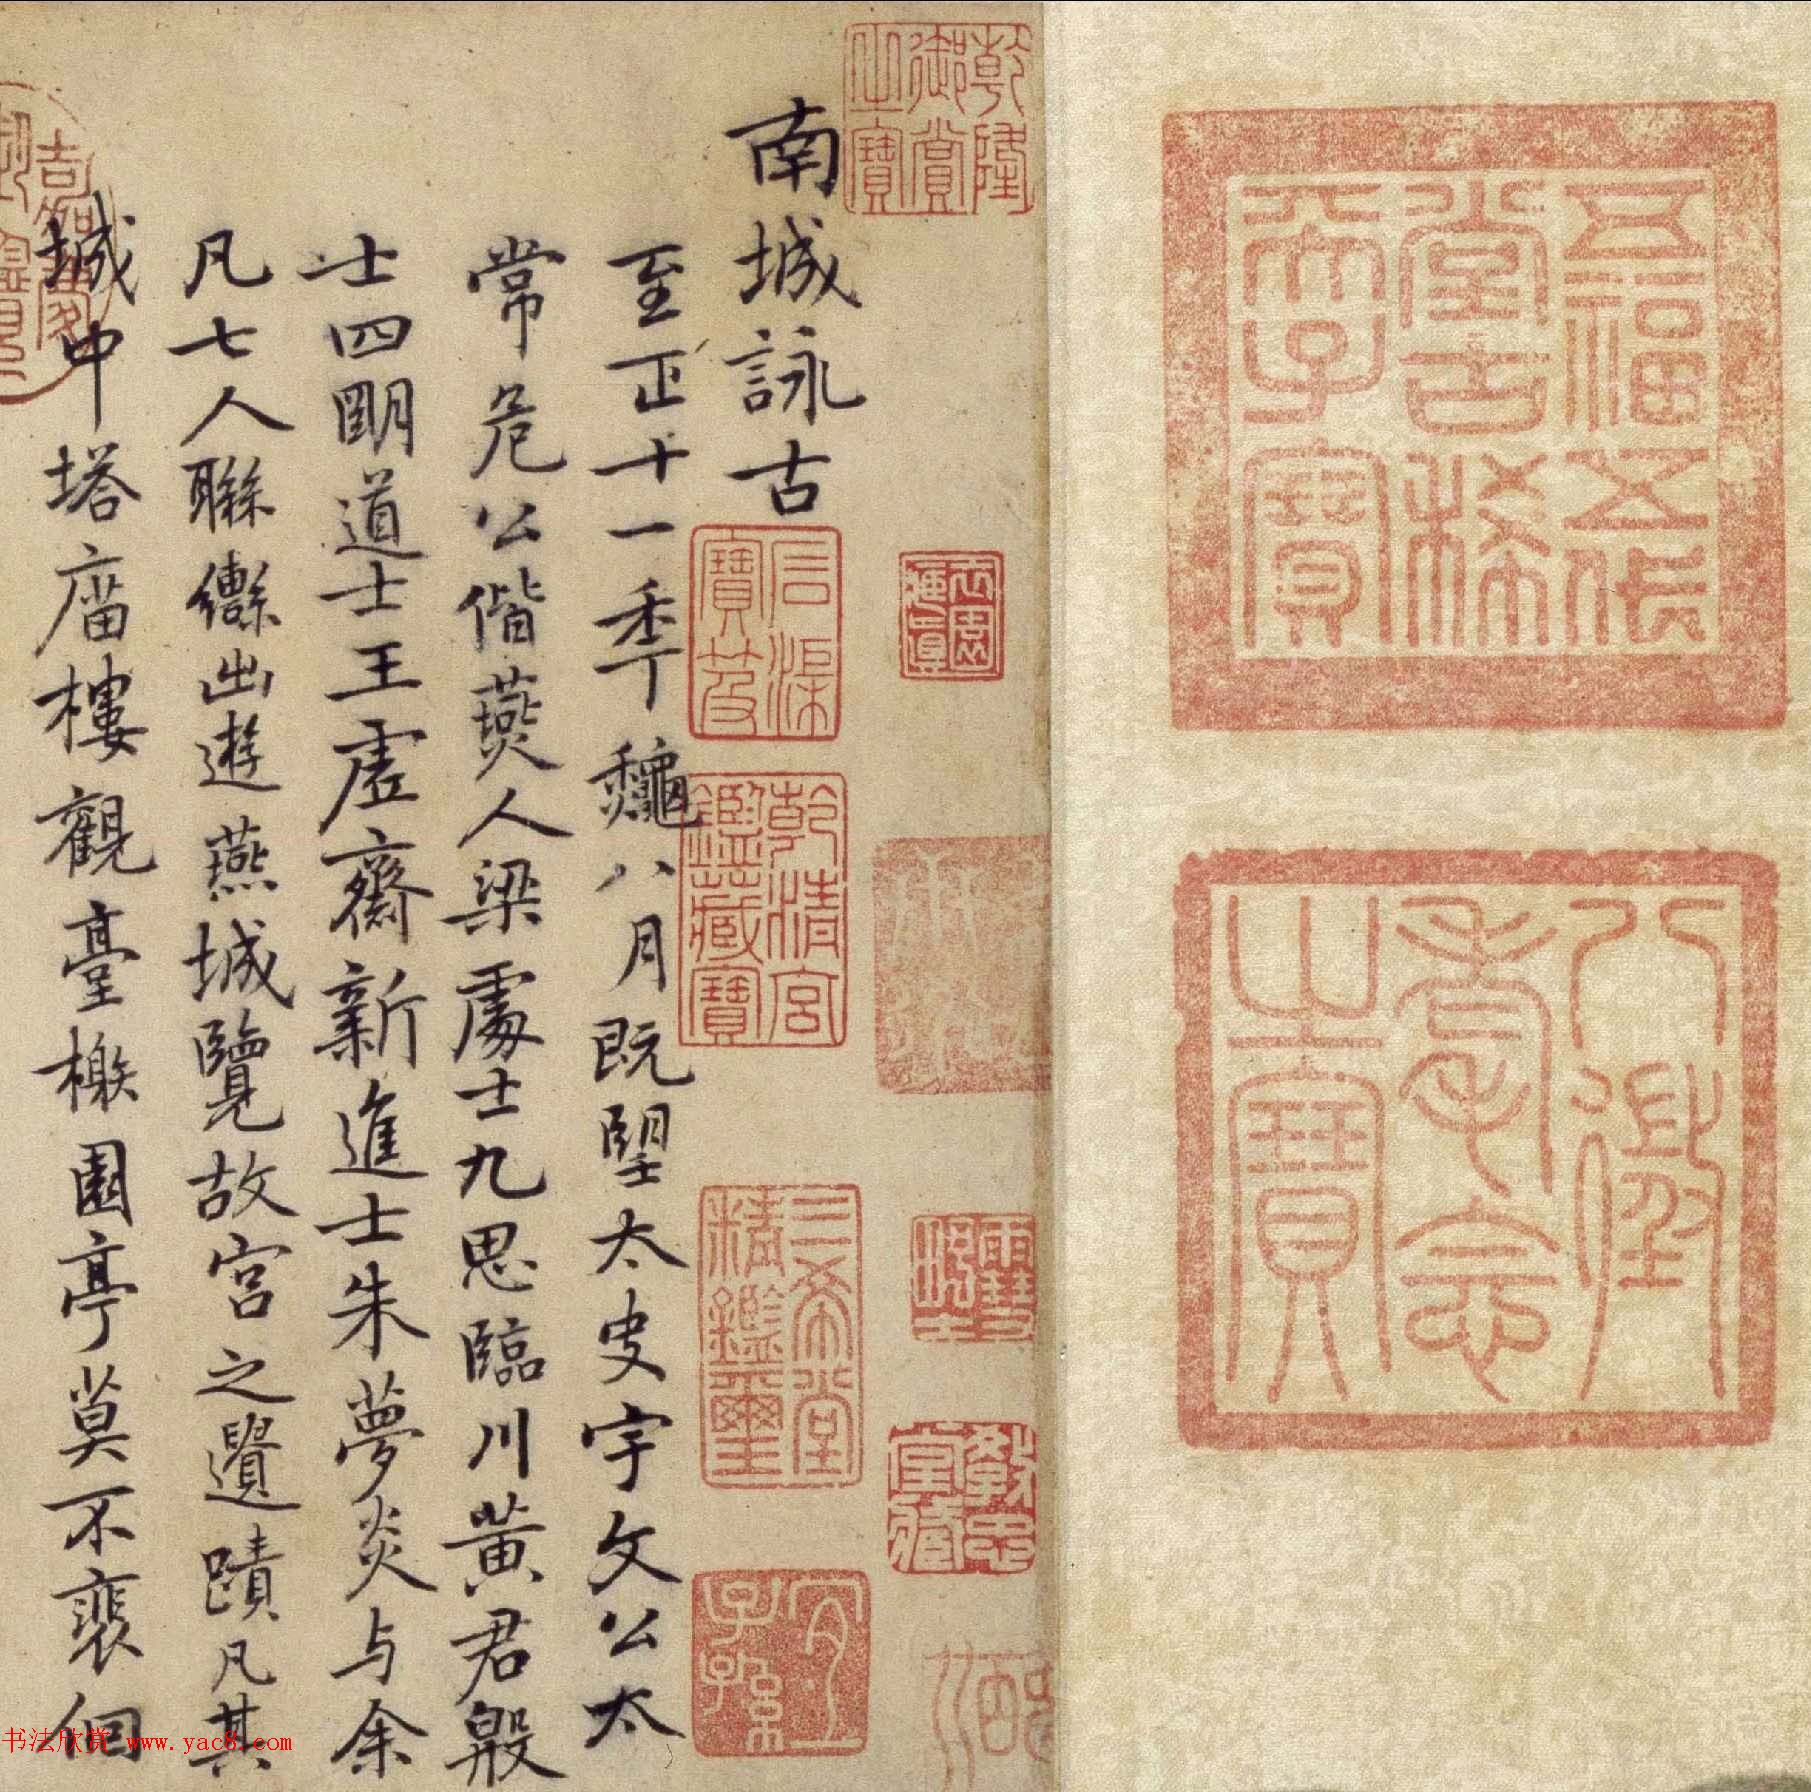 五福五代
堂古稀
天子寶
八徵
耄念
之寶
乾隆
御賞
之寶
石渠
寶笈
乾清宮
鑑藏寶
三希堂
精鑑璽
宜
子孫
南城詠古
至正十一秊龝八月既望太史宇文公太
常危公偕燕人梁處士九思臨川黃君殷
士四明道士王虛齋新進士朱夢炎与余
凡七人聯轡出遊燕城覽故宮之遺蹟凡其
城中塔廟樓觀臺榭園亭莫不裵徊
书法欣赏 www.yac8.com